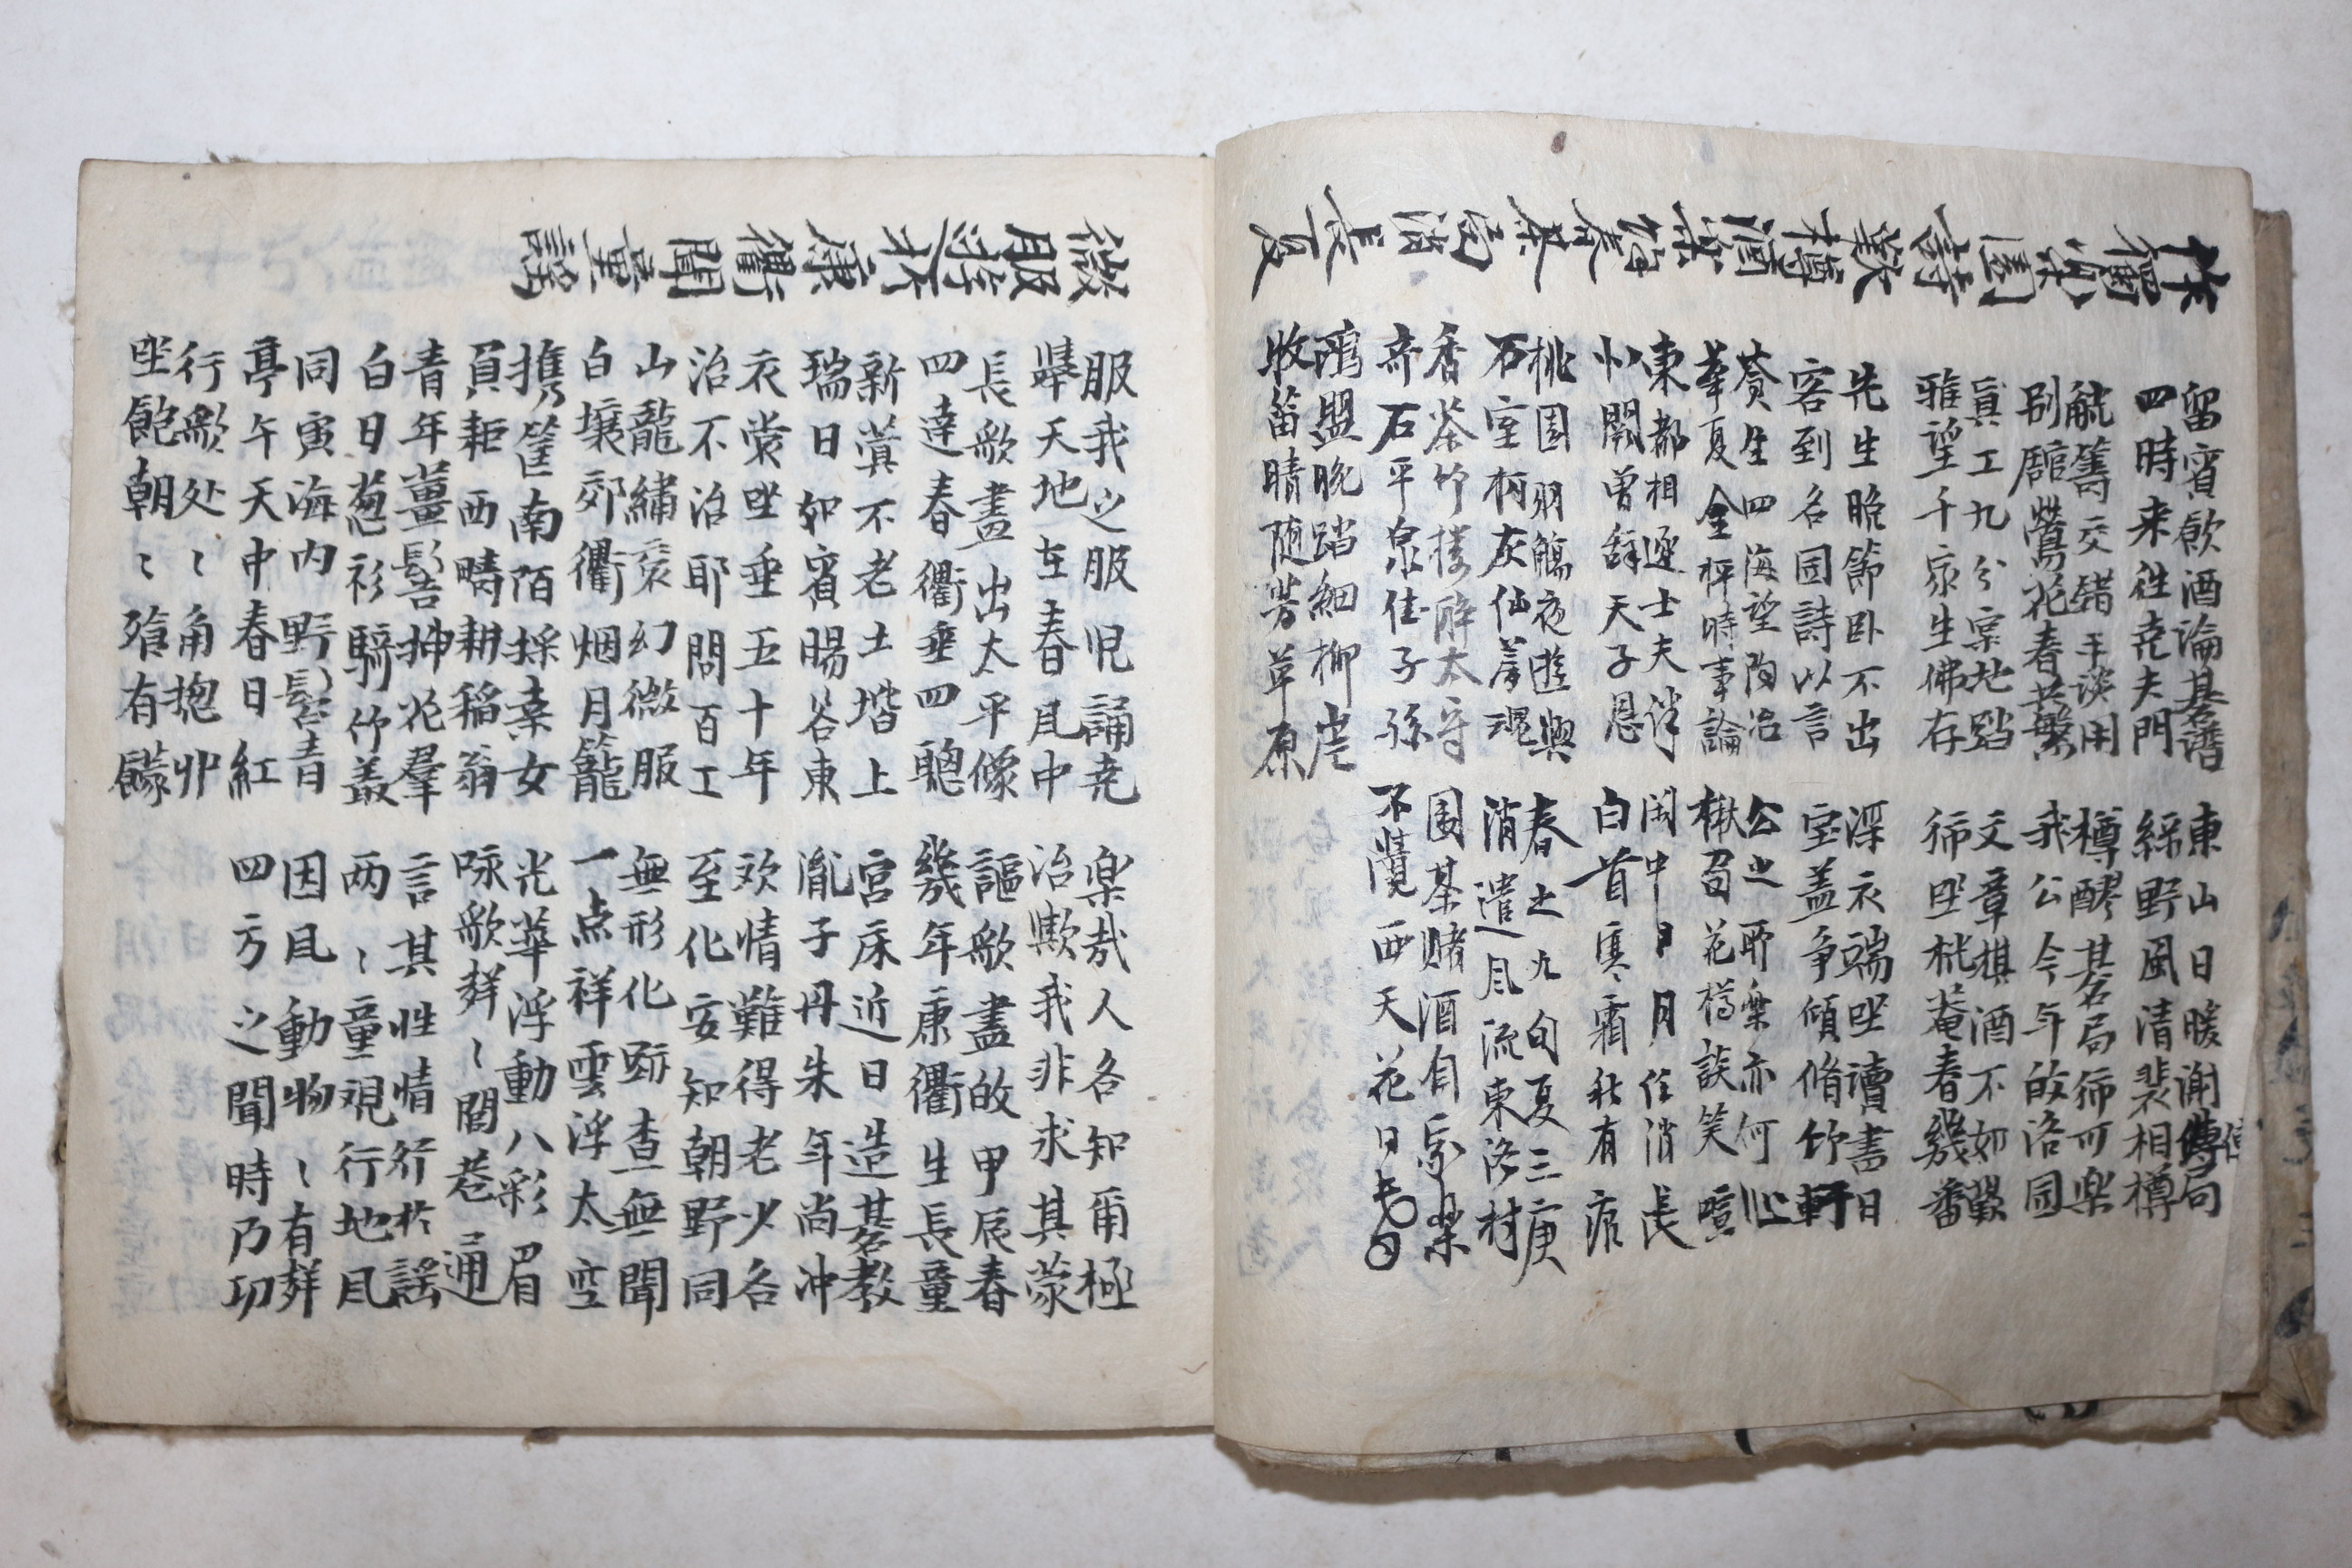 作獨樂園詩歎樽酒樂餘春碁局消長夏
留賓飮酒論碁譜 東山日暖謝傅局
四時来往尭夫門 綠野風清裴相樽
觥籌交錯手淡用 樽醪碁局師可楽
別館鶯花春共繁 我公今年的洛園
眞工九分地蹈 文章棋酒不如歎
雅望千家生佛存 師坐菴春幾番
先生晩節卧不出 深衣端坐讀書日
客到名園詩以言 宝盖爭傾脩竹軒
蒼生四海望陶冶 公之耶樂亦何心
華夏金秤時事論 楸召花樽談笑喧
東都相逐士夫 闲中日月任消長
小閣曾辞天子恩 白首寒霜秋有痕
桃園羽觴夜遊與 春之九旬夏三庚
石室柯灰仙着魂 消遣風流東洛村
香茶竹樓醉太守 围碁赌酒自家樂
奇石平泉佳子孫 不覺西天花日昏
鷗盟晩踏細柳岸
收笛晴随芳草原
微服遊於康衢聞童謠
服我之服児誦尭 楽哉人各知甫極
擧天地在春風中 治歟我非求其蒙
長歌盡出太平像 謳歌盡的甲辰春
四達春衢垂四聰 幾年康衢生長童
新蓂不老土堦上 宮床近日造碁教
瑞日如賓暘谷東 胤子丹朱年尚冲
衣裳坐垂五十年 欢情難得老少各
治不治耶問百工 至化安知朝野同
山龍繡袞幻微服 無形化跡査無聞
白壤郊衢烟月籠 一点祥雲浮太空
携筐南陌採桑女 光華浮動八彩眉
負耟西疇耕稻翁 咏歌群〻閭巷通
青年薑髻揷花羣 言其性情行於謠
白日葱衫騎竹叢 两〻童覌行地風
同寅海内野髫青 因風動物〻有群
亭午天中春日紅 四方之聞時乃功
行歌处〻角揔丱
坐飽朝〻飱有饛